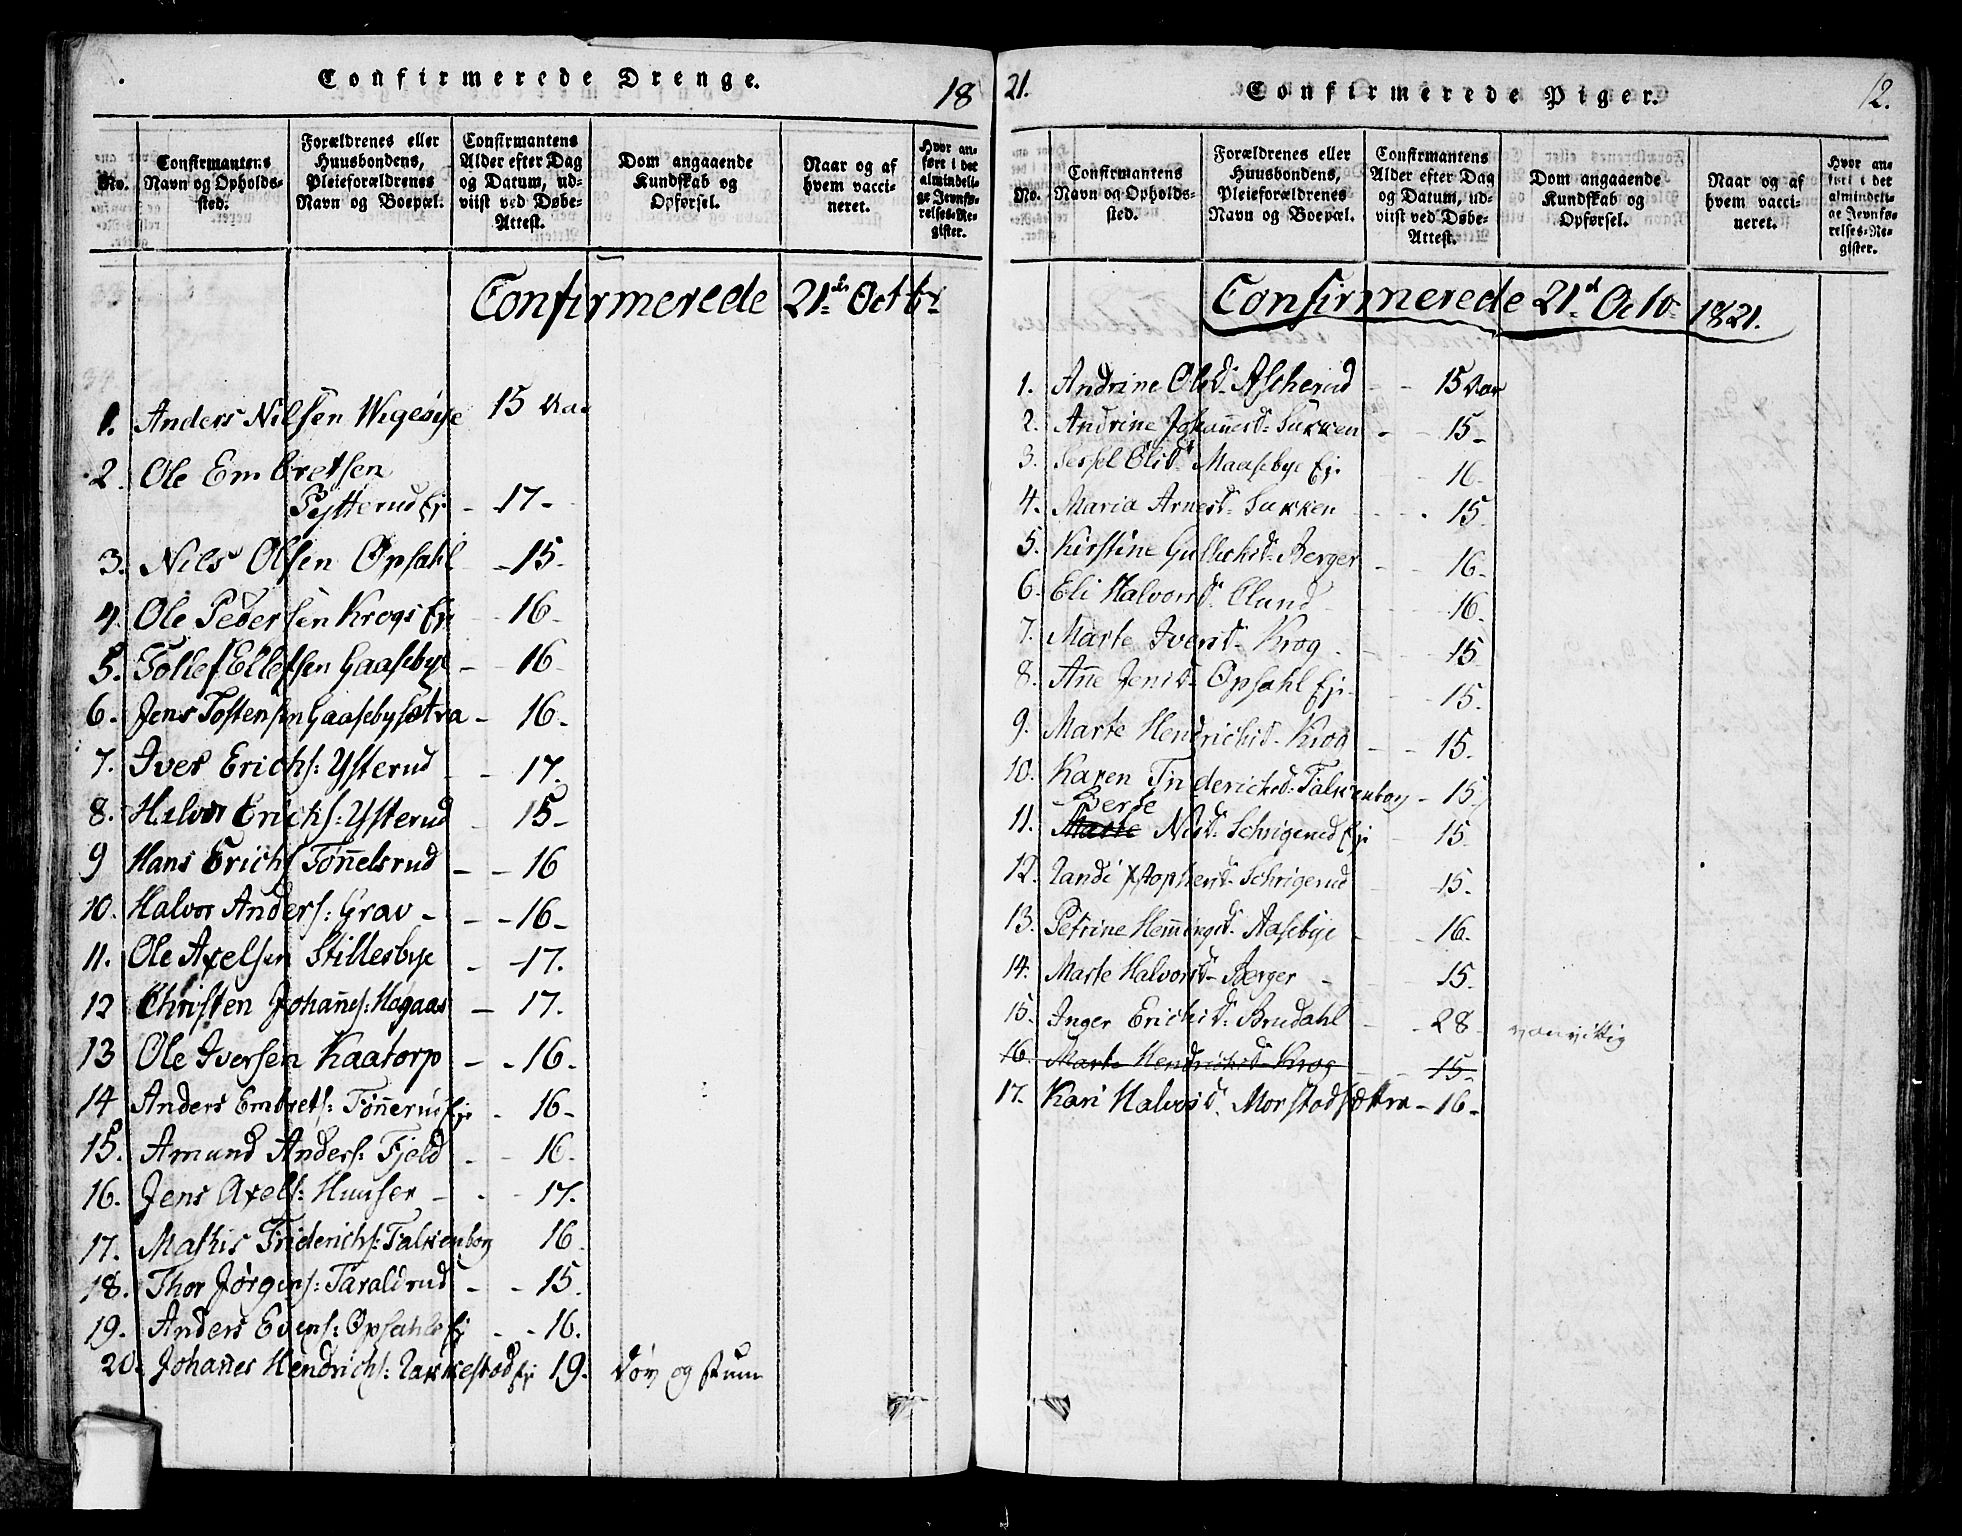 Confirmerede Drenge.
18
No.
Confirmantens Navn og Opholds-sted.
Forældrenes eller Huusbondens, Pleieforældrenes Navn og Boepæl.
Confirmantens Alder efter Dag og Datum, ud-viist ved Døbe-Attest.
Dom angaaende Kundskab og Opførsel.
Naar og af hvem vacci-neret.
Hvor an-ført i det almindeli-ge Jevnfø-relses-Re-gister.
Confirmerede 21de Octbr
1. Anders Nilsen Wigesøye 15 Aar
2. Ole Embretsen
Pytterud Ej - 17-
3. Nils Olsen Opsahl - 15-
4. Ole Pedersen Krogs Ej - 16-
5. Tollef Ellefsen Gaasebye - 16-
6. Jens Tostensen Gaasebysætra - 16-
7. Iver Erichs: Ysterud - 17.
8. Halvor Erichs: Ysterud - 15-
9 Hans Erichs Tøn̄elsrud - - 16
10. Halvor Anders: Grav - - - 16-
11. Ole Axelsen Stillesbye - - 17.
12 Christen Johan̄es: Hagaas - 17.
13 Ole Iversen Kaatorp - - 16-
14 Anders Embrets: Tøn̄erud Ej - 16-
15. Amund Anders: Fjeld - - 16-
16. Jens Axels: Hunser - - - 17.
17. Mathis Friderichs: Falkenborg 16
18. Thor Jørgens: Taraldrud - - 15.
19. Anders Evens: Opsahls Ej - - 16.
20. Johan̄es Hendrichs: Rakkestad Ej 19. døv og stum
21.
Confirmerede Piger.
12.
No.
Confirmantens Navn og Opholds-sted.
Forældrenes eller Huusbondens, Pleieforældrenes Navn og Boepæl.
Confirmantens Alder efter Dag og Datum, ud-viist ved Døbe-Attest.
Dom angaaende Kundskab og Opførsel.
Naar og af hvem vacci-neret.
Hvor an-ført i det almindeli-ge Jevnfø-relses-Re-gister.
Confirmerede 21d Octo 1821.
1. Andrine Olsd. Ascherud - - 15 Aar
2. Andrine Johan̄esd: Sukken - - 15-
3. Sessel Olsd. Maasebye Ej. - 16-
4. Maria Arnesd: Sukken - - 15.
5. Kirstine Gulichsd: Berger - - 16-
6. Eli Halvorsd. Olund - - 16.
7. Marte Iversd. Krog - - 15
8. An̄e Jensd. Opsahl Ej. - 15.
9. Marte Hendrichsd. Krog - - 15.
10. Karen Friderichsd: Falkenborg - 15
Berte
11. Marte Nilsd. Schrigerud Ej - 15
12. Randi Chstophersd. Schrigerud - 15.
13. Petrine Hem̄ingsd. Aasebye - - 16.
14. Marte Halvorsd - Berger - - 15.
15. Inger Erichsd. Brudahl - - 28- vanvittig
16. Marte Hendrichsd. Krog - - 15-
17. Kari Halvorsd. Morstadsættra - 16-